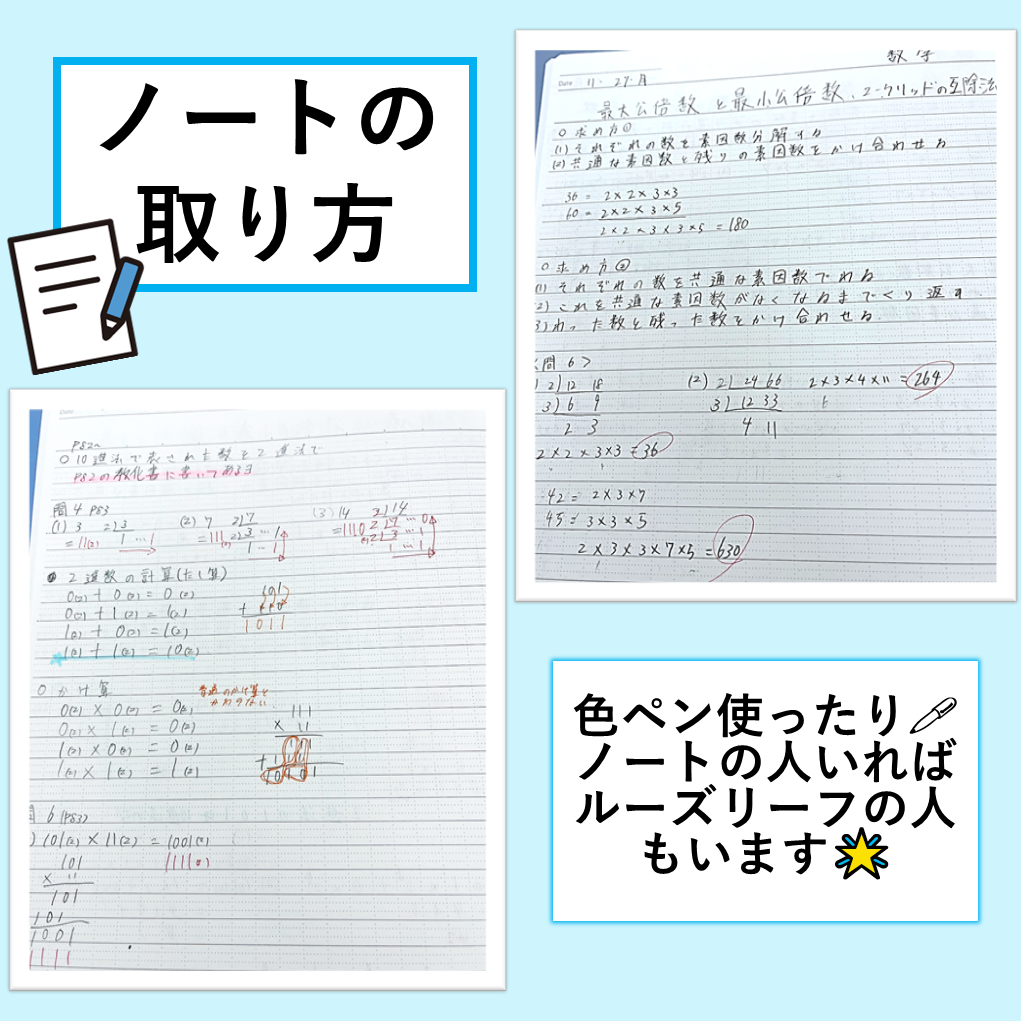 ノートの
取り方
数学
Date 11・27・月
最大公倍数と最小公倍数、ユークリッドの互除法
○求め方①
(1)それぞれの数を素因数分解する
(2)共通な素因数と残りの素因数をかけ合わせる
36 = 2×2×3×3
60 = 2×2×3×5
2×2×3×3×5 = 180
○求め方②
(1)それぞれの数を共通な素因数でわる
(2)これを共通な素因数がなくなるまでくり返す
3)わった数と残った数をかけ合わせる
<問6>
) 2)12 18
3)6 9
2 3
2×2×3×3 = 36
(2) 2)24 66
3)12 33
4 11
2×3×4×11 = 264
42 = 2×3×7
45 = 3×3×5
2×3×3×7×5 = 630
Date
P82~
○10進法で表された数を2進法で
P82の教化書に書いてあるヨ
問4 P83
(1) 3 2)3
1 … 1
= 11(2)
(2) 7 2)7
2)3 … 1
1 … 1
= 111(2)
(3) 14 2)14
2)7 … 0
2)3 … 1
1 … 1
= 1110(2)
2進数の計算(たし算)
0(2) + 0(2) = 0(2)
0(2) + 1(2) = 1(2)
1(2) + 0(2) = 1(2)
1(2) + 1(2) = 10(2)
101
+ 110
1011
○かけ算
普通のかけ算と
かわらない
0(2) × 0(2) = 0(2)
0(2) × 1(2) = 0(2)
1(2) × 0(2) = 0(2)
1(2) × 1(2) = 1(2)
111
× 11
10101
6 (P83)
) 101(2) × 11(2) = 1001(2)
1111(2)
101
× 11
101
101
1001
1111
色ペン使ったり
ノートの人いれば
ルーズリーフの人
もいます